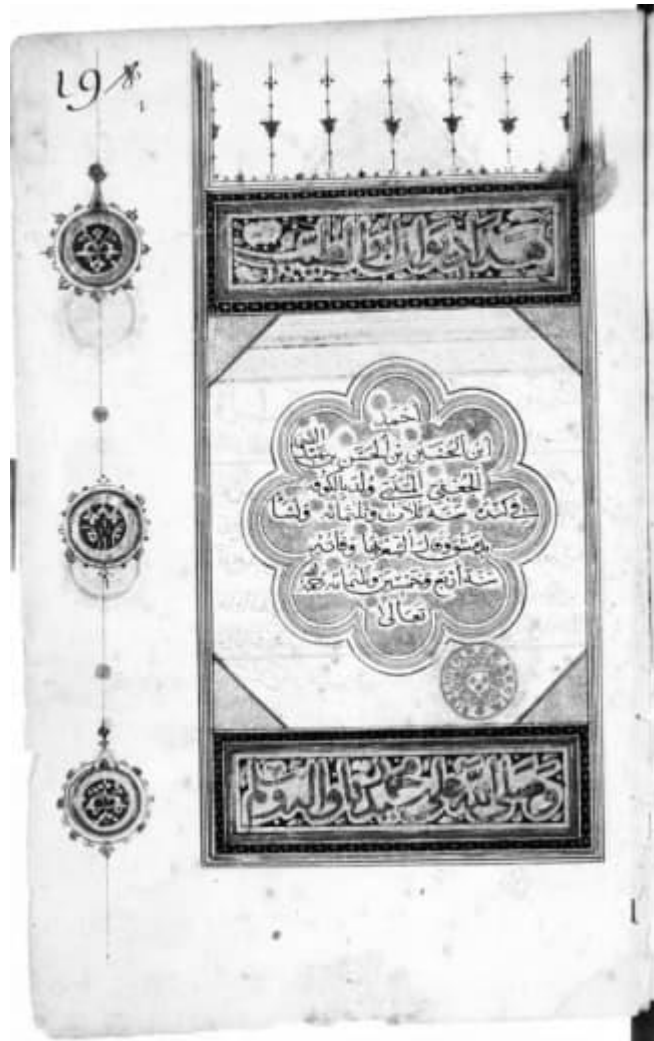 19
هذا ديوان ابو الطيب
احمد
ابن الحسين بن الحسن بن عبد
الجعفي المتنبي ولد بالكوفه
في كنده سنه ثلاث وثلثمائه ونشأ
وقال الشعر بها وفاته
سنة اربع وخمسين وثلثمائه
تعالى
وصلى الله على سيدنا محمد واله وسلم
1